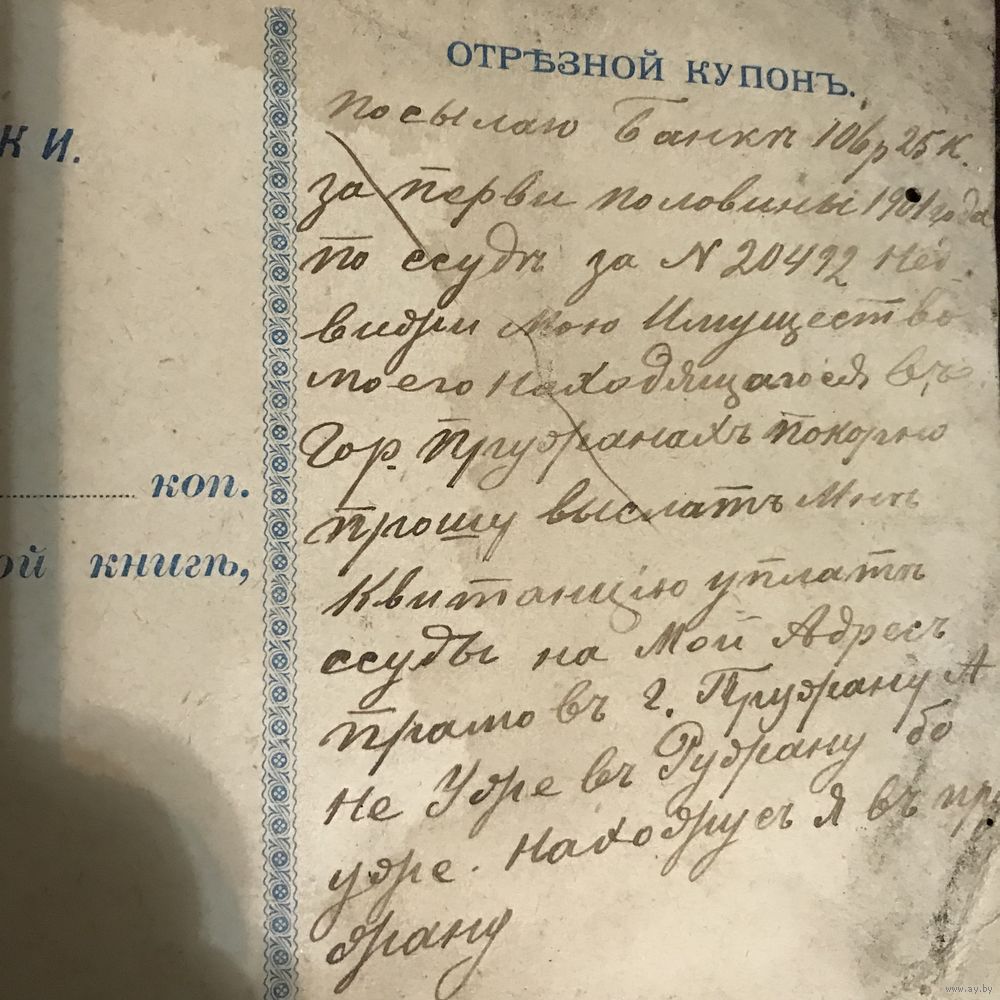 КИ.
коп.
ой книгѣ,
ОТРѢЗНОЙ КУПОНЪ.
посылаю Банкѣ 106р 25 к.
за перви половины 1901 года
по ссудѣ за N 20492 Нед
вижи мою Имущество
моего находящагося въ
Гор. Пружанахъ покорно
прошу выслатъ Мнѣ
Квитанцію уплатѣ
ссуды на Мой Адресъ
прамо въ г. Пружану А
не Уже въ Ружану бо
уже. нахожусъ я въ пру
жану
www.ay.by